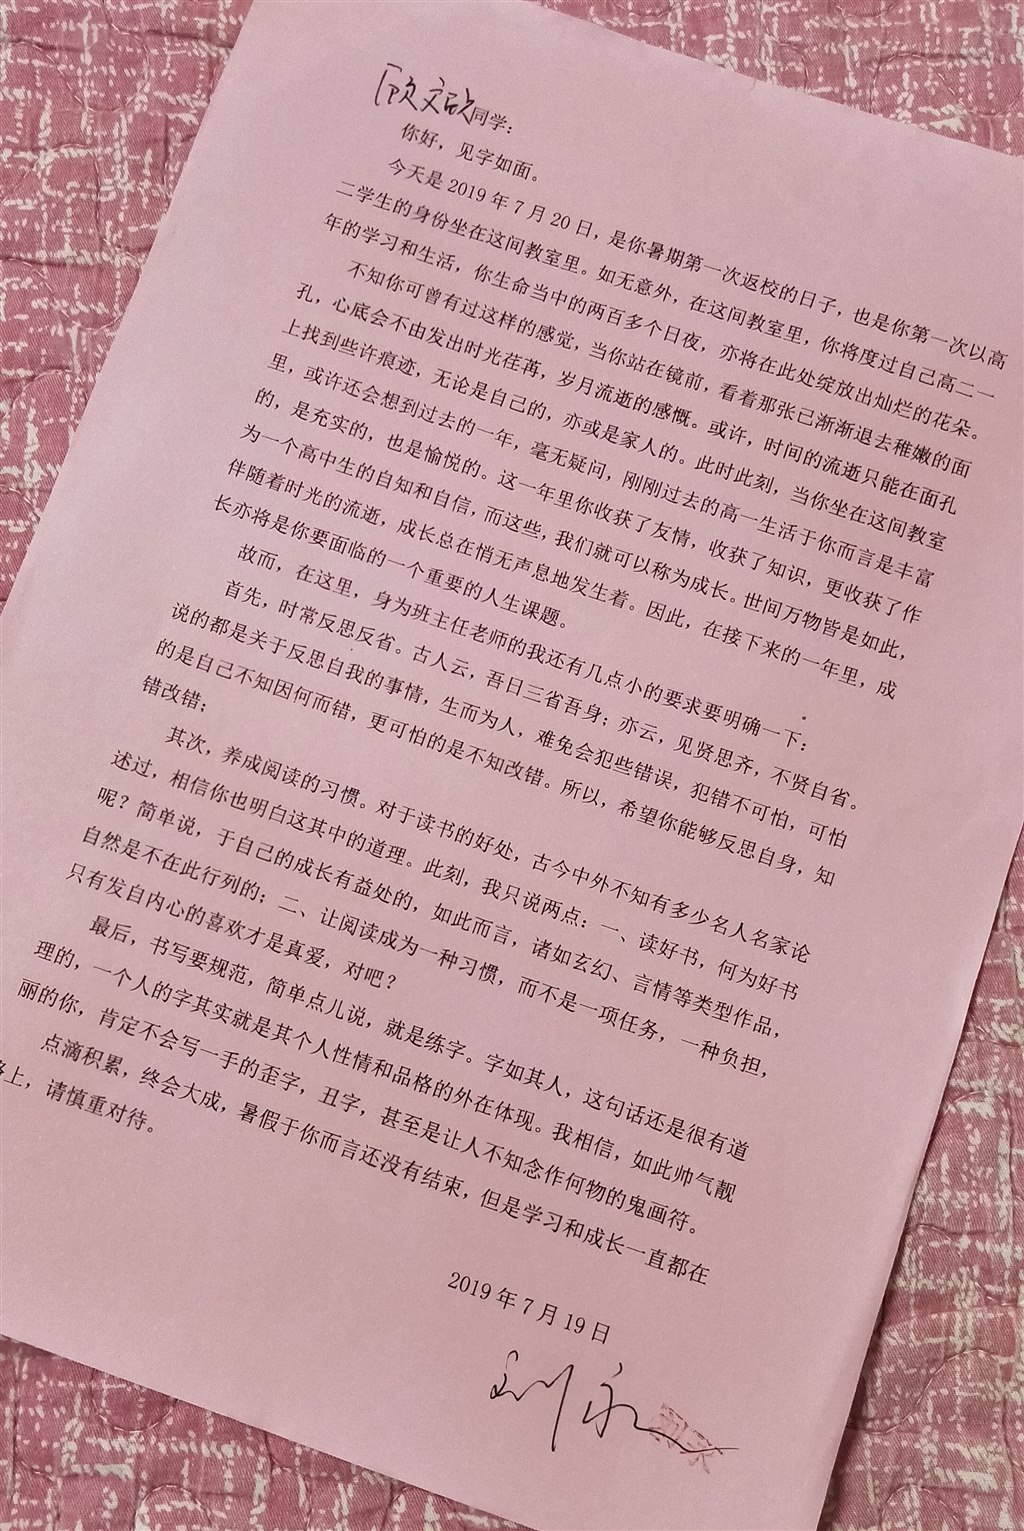 顾文欣同学：
你好，见字如面。
今天是 2019 年 7 月 20 日，是你暑期第一次返校的日子，也是你第一次以高
二学生的身份坐在这间教室里。如无意外，在这间教室里，你将度过自己高二一
年的学习和生活，你生命当中的两百多个日夜，亦将在此处绽放出灿烂的花朵。
不知你可曾有过这样的感觉，当你站在镜前，看着那张已渐渐退去稚嫩的面
孔，心底会不由发出时光荏苒，岁月流逝的感慨。或许，时间的流逝只能在面孔
上找到些许痕迹，无论是自己的，亦或是家人的。此时此刻，当你坐在这间教室
里，或许还会想到过去的一年，毫无疑问，刚刚过去的高一生活于你而言是丰富
的，是充实的，也是愉悦的。这一年里你收获了友情，收获了知识，更收获了作
为一个高中生的自知和自信，而这些，我们就可以称为成长。世间万物皆是如此，
伴随着时光的流逝，成长总在悄无声息地发生着。因此，在接下来的一年里，成
长亦将是你要面临的一个重要的人生课题。
故而，在这里，身为班主任老师的我还有几点小的要求要明确一下：
首先，时常反思反省。古人云，吾日三省吾身；亦云，见贤思齐，不贤自省。
说的都是关于反思自我的事情，生而为人，难免会犯些错误，犯错不可怕，可怕
的是自己不知因何而错，更可怕的是不知改错。所以，希望你能够反思自身，知
错改错；
其次，养成阅读的习惯。对于读书的好处，古今中外不知有多少名人名家论
述过，相信你也明白这其中的道理。此刻，我只说两点：一、读好书，何为好书
呢？简单说，于自己的成长有益处的，如此而言，诸如玄幻、言情等类型作品，
自然是不在此行列的；二、让阅读成为一种习惯，而不是一项任务，一种负担，
只有发自内心的喜欢才是真爱，对吧？
最后，书写要规范，简单点儿说，就是练字。字如其人，这句话还是很有道
理的，一个人的字其实就是其个人性情和品格的外在体现。我相信，如此帅气靓
丽的你，肯定不会写一手的歪字，丑字，甚至是让人不知念作何物的鬼画符。
点滴积累，终会大成，暑假于你而言还没有结束，但是学习和成长一直都在
路上，请慎重对待。
2019 年 7 月 19 日
刘永
刘永